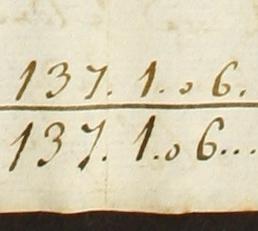 137. 1. 0 6.
137. 1. 0 6...